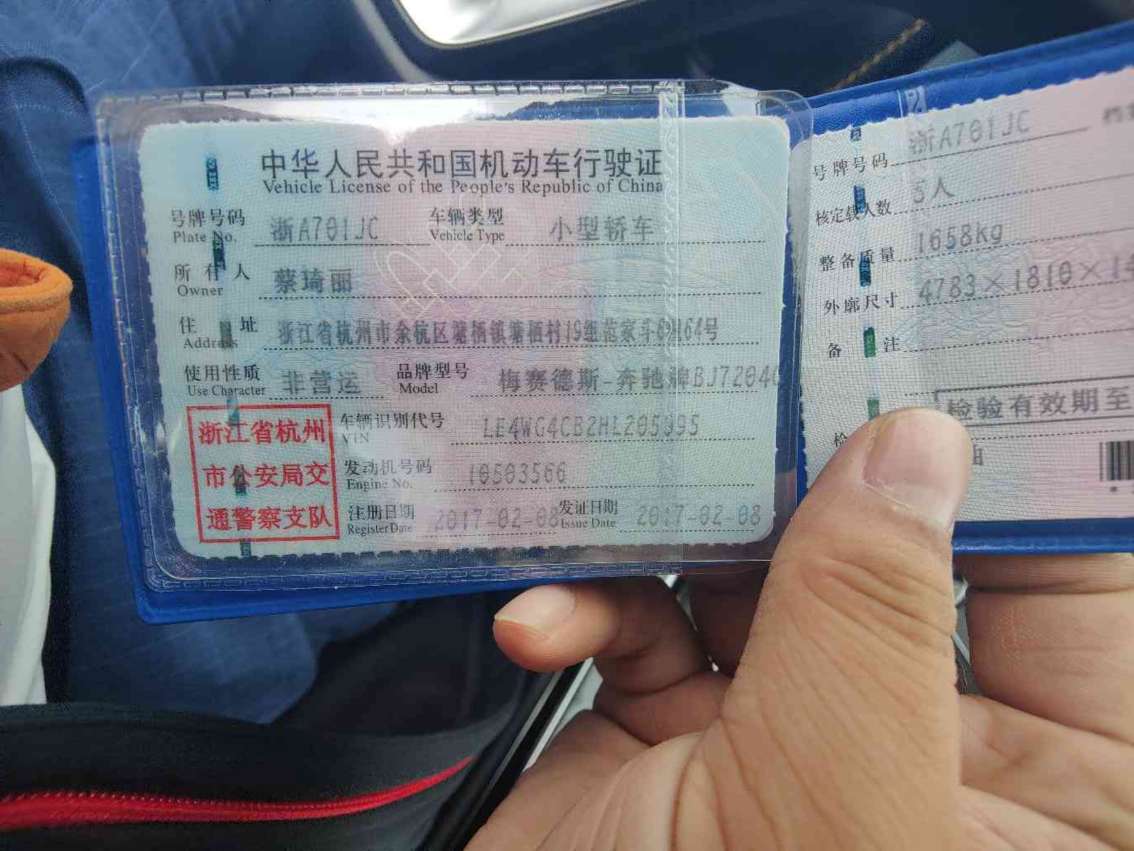 中华人民共和国机动车行驶证
Vehicle License of the People's Republic of China
号牌号码 浙A701JC 车辆类型 小型轿车
Plate No. Vehicle Type
所有人 蔡琦丽
Owner
住址 浙江省杭州市余杭区塘栖镇塘栖村19组范家斗 164号
Address
使用性质 非营运 品牌型号 梅赛德斯-奔驰牌BJ7204
Use Character Model
浙江省杭州
市公安局交
通警察支队
车辆识别代号 LE4WG4CB2HL205095
VIN
发动机号码 10503566
Engine No.
注册日期 2017-02-08 发证日期 2017-02-08
Register Date Issue Date
号牌号码 浙A701JC
核定载人数 5人
整备质量 1658kg
外廓尺寸 4783×1810×14
备注
检验有效期至
检
油